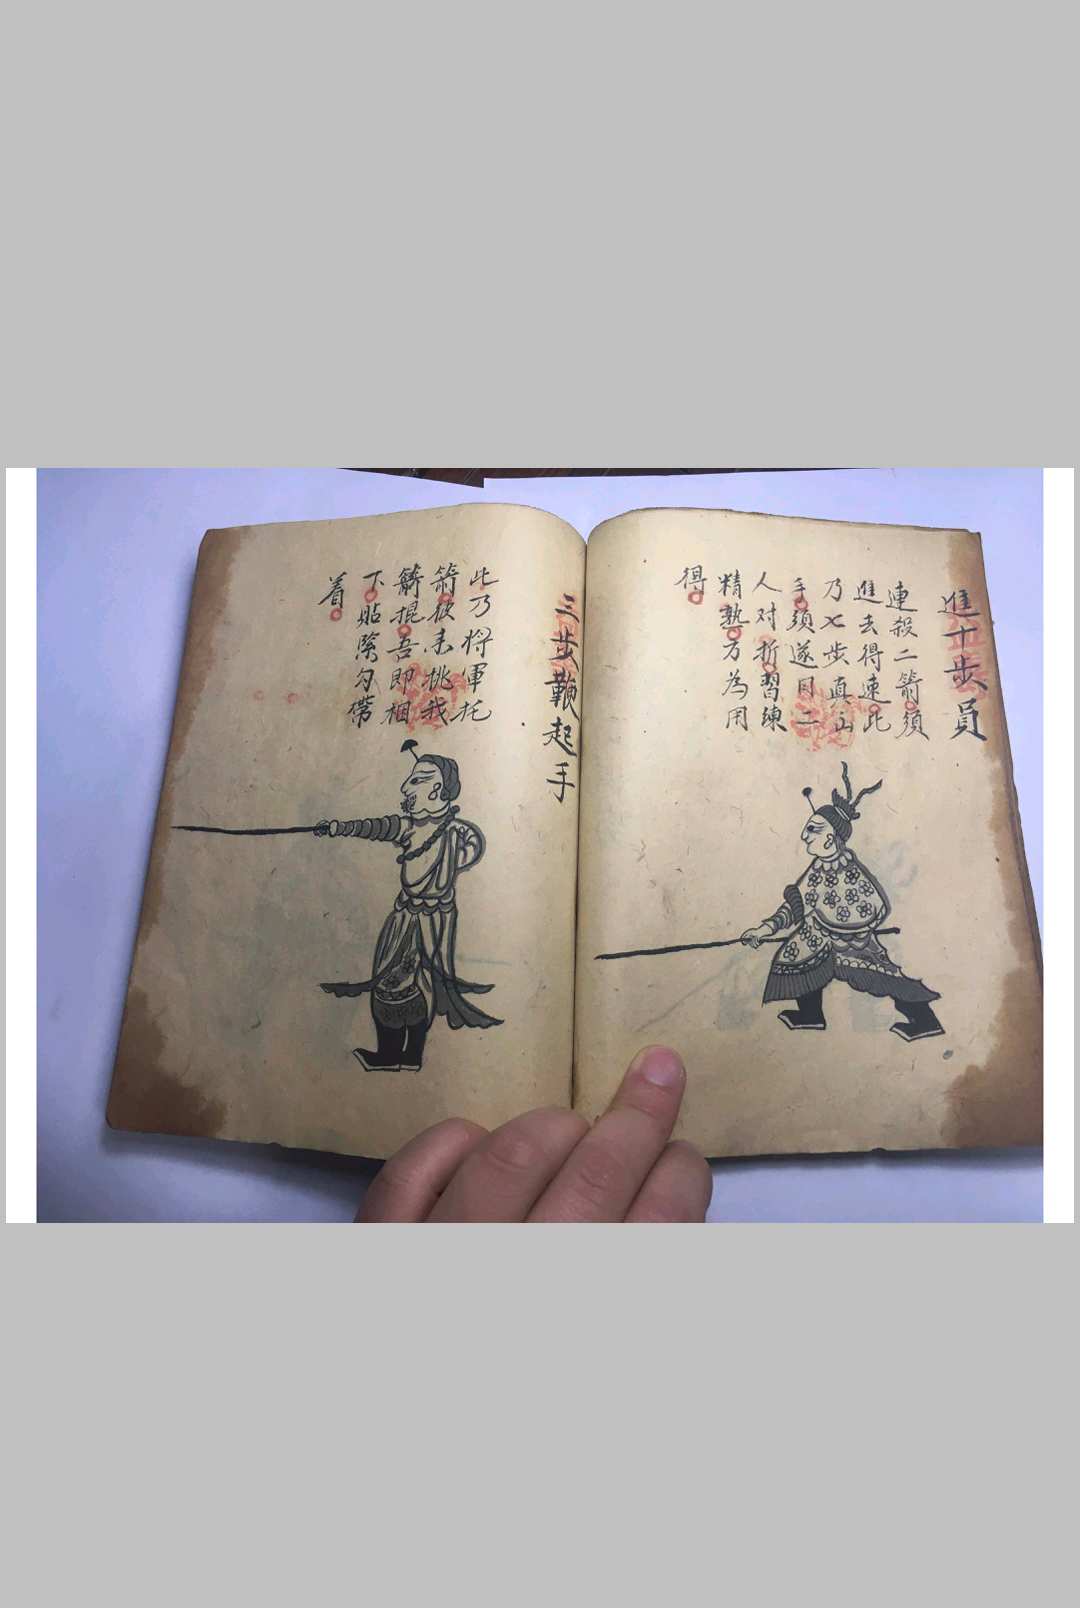 進十步員
連殺二箭須
進去得速此
乃七步真
手須遂目二
人对折習練
精熟方為用
得
三步鞭起手
此乃将軍托
箭彼來挑我
掍吾即相
下貼除勾帶
着